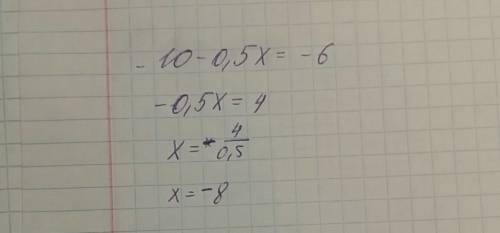 -10-0,5x=-6
-0,5x=4
x=-4/0,5
x=-8